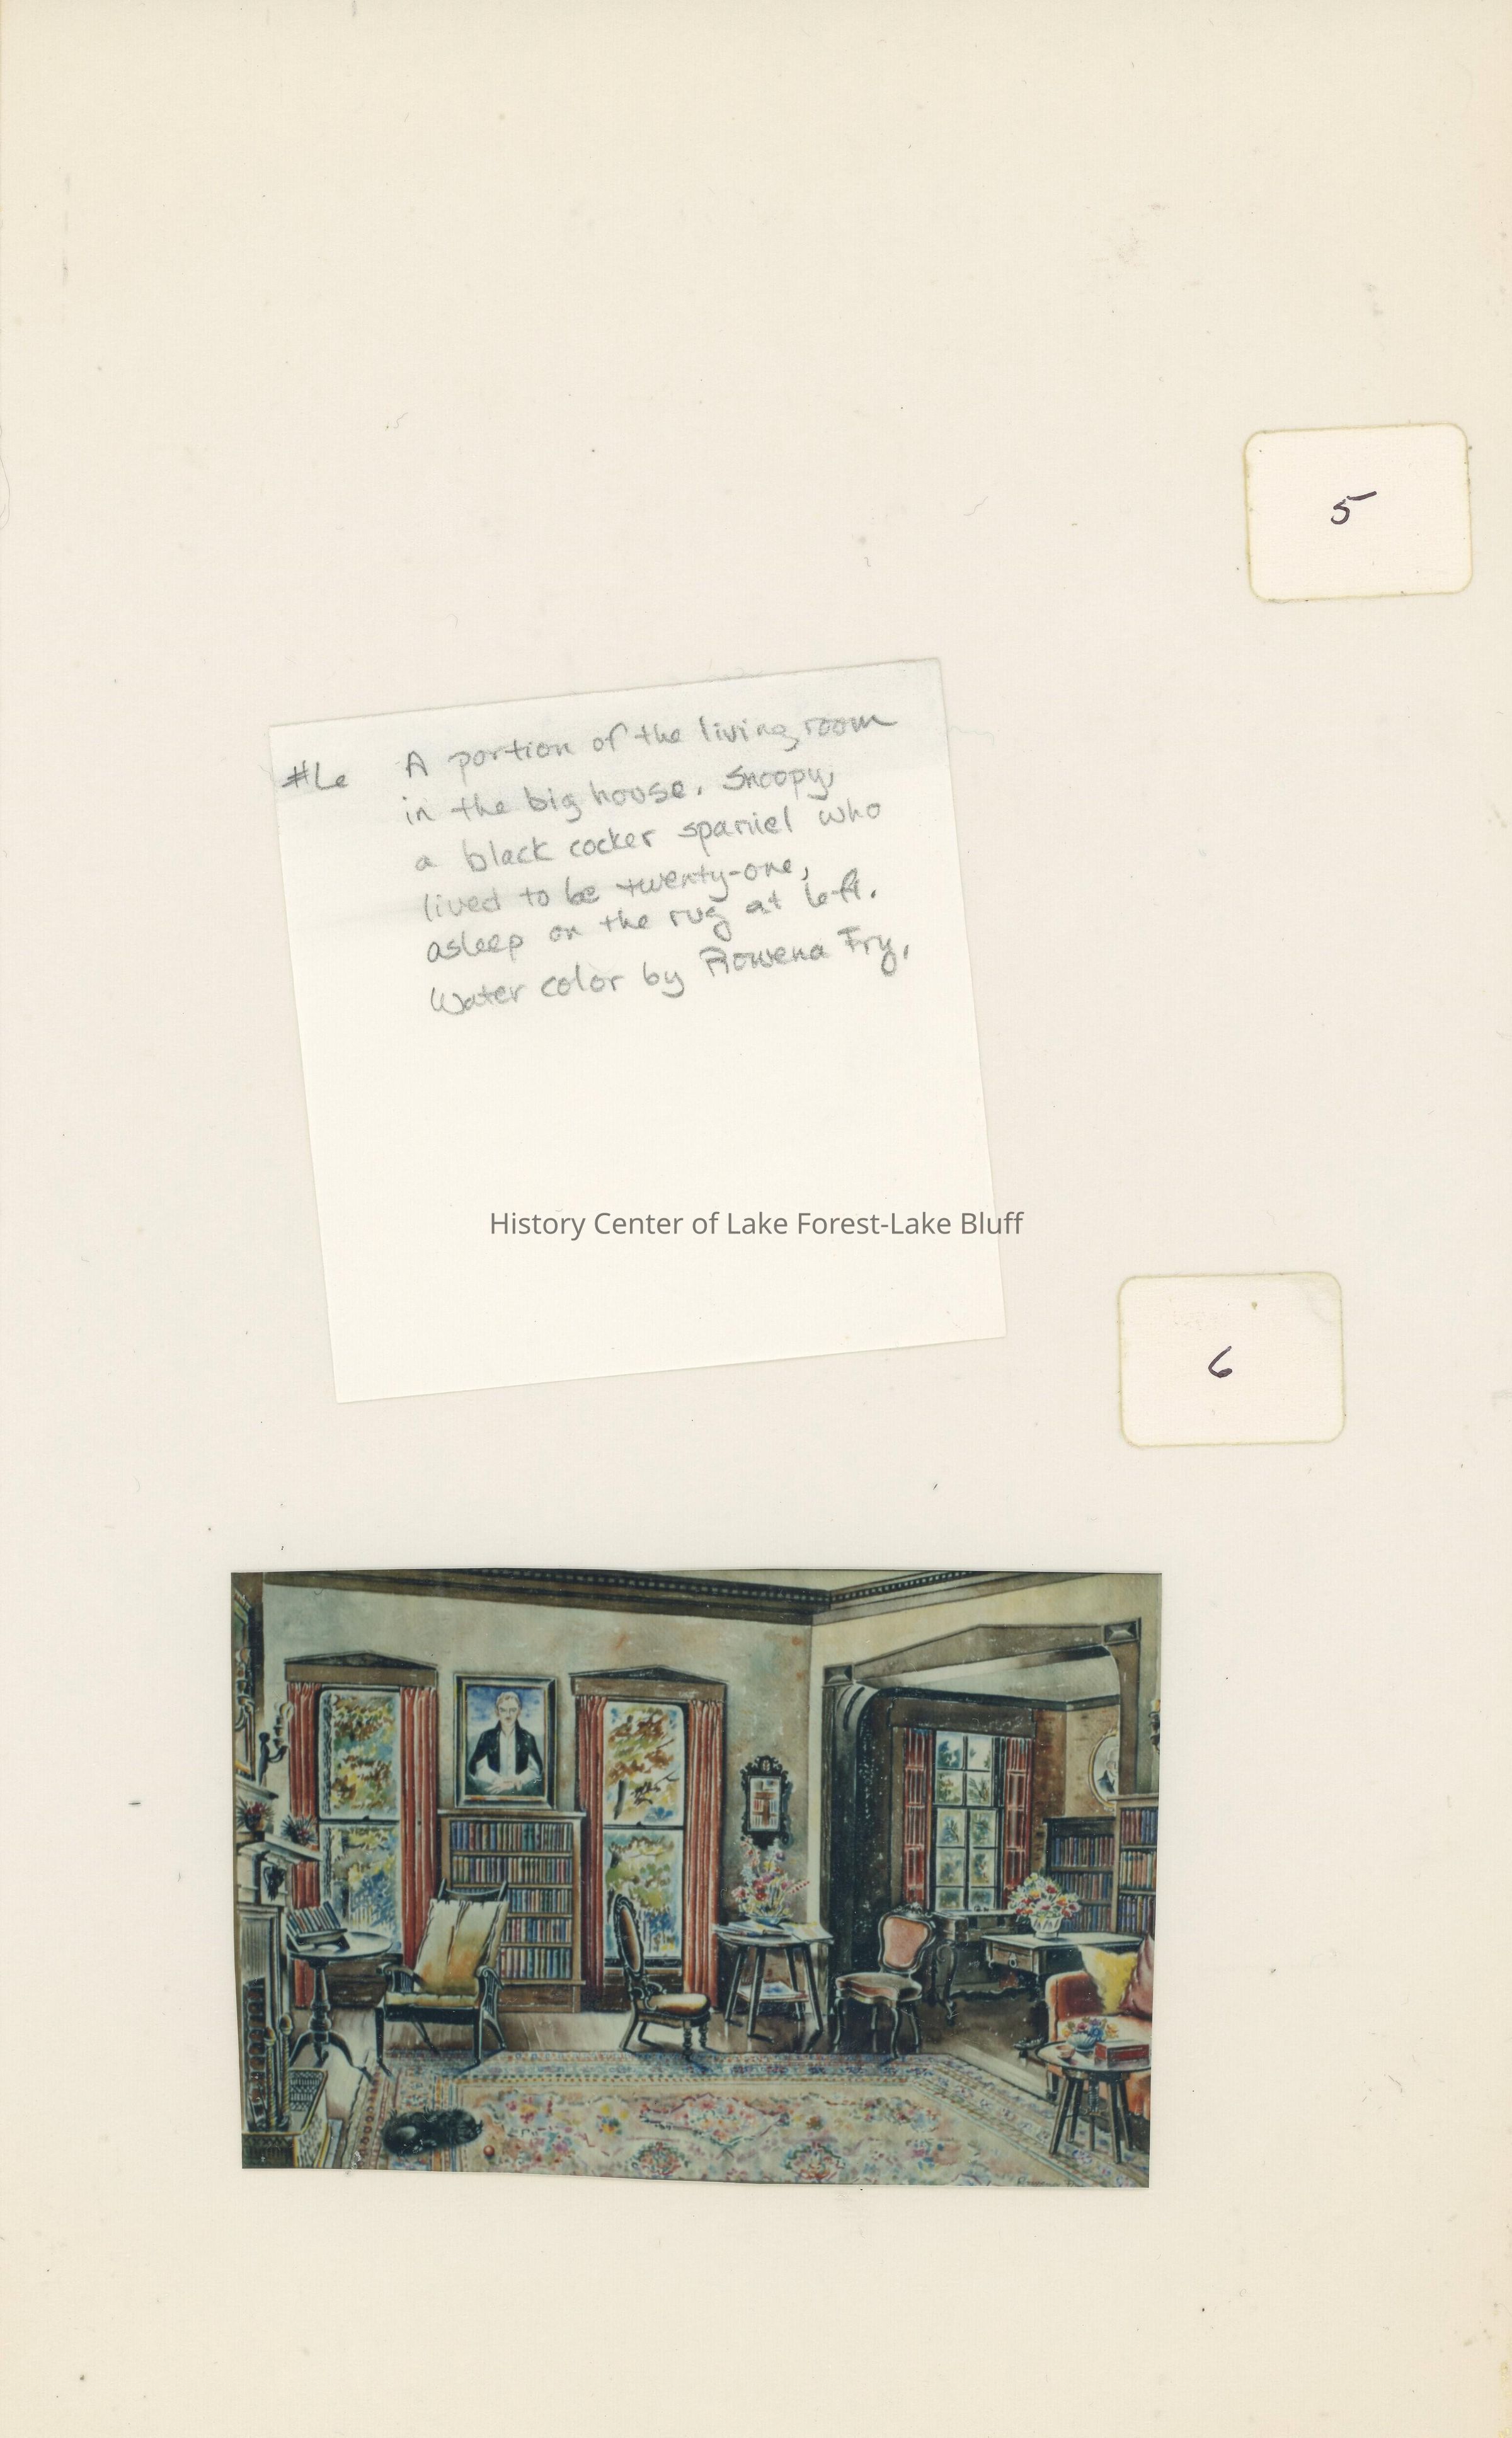 5
#6 A portion of the living room
in the big house. Snoopy,
a black cocker spaniel who
lived to be twenty-one,
asleep on the rug at left.
Water color by Rowena Fry.
History Center of Lake Forest-Lake Bluff
6